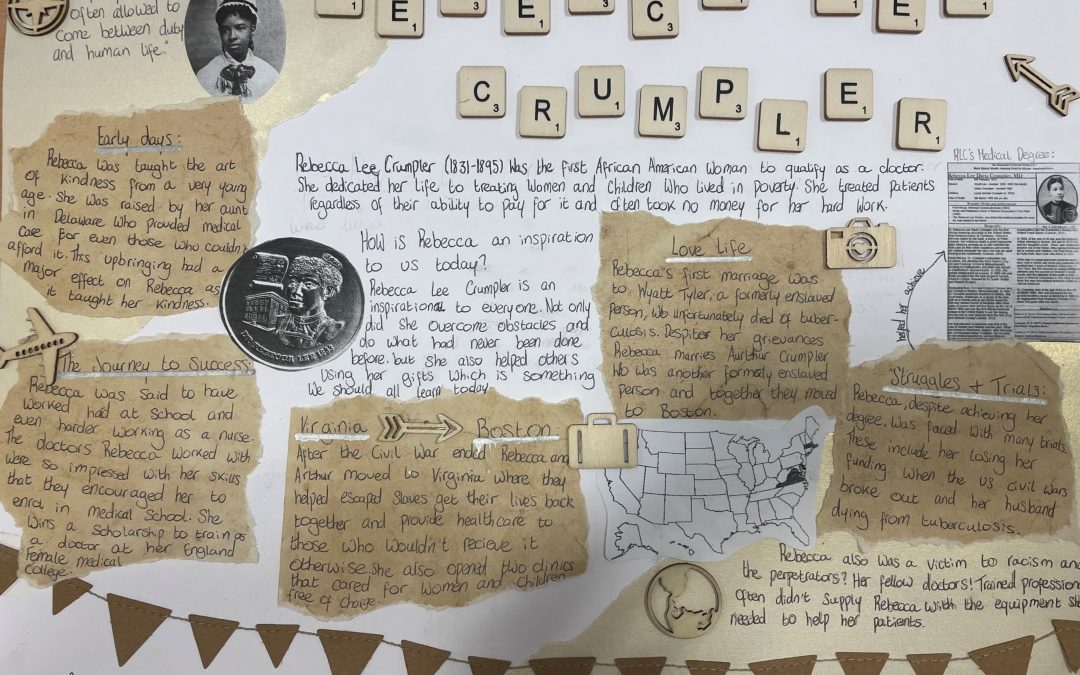 Often allowed to
come between duty
and human life."
E E C E E
CRUMPLER
Early days:
Rebecca was taught the art
of kindness from a very young
age. She was raised by her aunt
in Delaware who provided medical
care for even those who couldn't
afford it. This upbringing had a
major effect on Rebecca as
it taught her kindness.
Rebecca Lee Crumpler (1831-1895) was the first African American Woman to qualify as a doctor.
She dedicated her life to treating women and children who lived in poverty. She treated patients
regardless of their ability to pay for it and often took no money for her hard work.
RLC's Medical Degree:
helped her achieve
How is Rebecca an inspiration
to us today?
Rebecca Lee Crumpler is an
inspirational to everyone. Not only
did she overcome obstacles and
do what had never been done
before, but she also helped others
using her gifts which is something
we should all learn today.
Love Life
Rebecca's first marriage was
to Wyatt Tyler, a formerly enslaved
person, who unfortunately died of tuber-
culosis. Despiter her grievances
Rebecca marries Aurthur Crumpler
who was another formerly enslaved
person and together they moved
to Boston.
The Journey to Success:
Rebecca was said to have
worked had at school and
even harder working as a nurse.
The doctors Rebecca worked with
were so impressed with her skills
that they encouraged her to
enrol in medical school. She
wins a scholarship to train as
a doctor at her England
Female medical
College.
Virginia Boston:
After the Civil War ended Rebecca and
Arthur moved to Virginia where they
helped escaped slaves get their lives back
together and provide healthcare to
those who wouldn't recieve it
otherwise. She also opened two clinics
that cared for women and children
free of charge.
Struggles + Trials:
Rebecca, despite achieving her
degree, was faced with many trials.
These include her losing her
funding when the US civil wars
broke out and her husband
dying from tuberculosis.
Rebecca also was a victim to racism and
the perpetrators? Her fellow doctors! Trained profession
often didn't supply Rebecca with the equipment she
needed to help her patients.